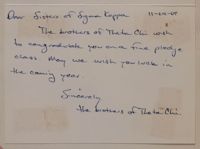 Dear Sisters of Sigma Kappa
The brothers of Theta Chi wish
to congratulate you on a fine pledge
class. May we wish you luck in
the coming year.
Sincerely
the brothers of Theta Chi.